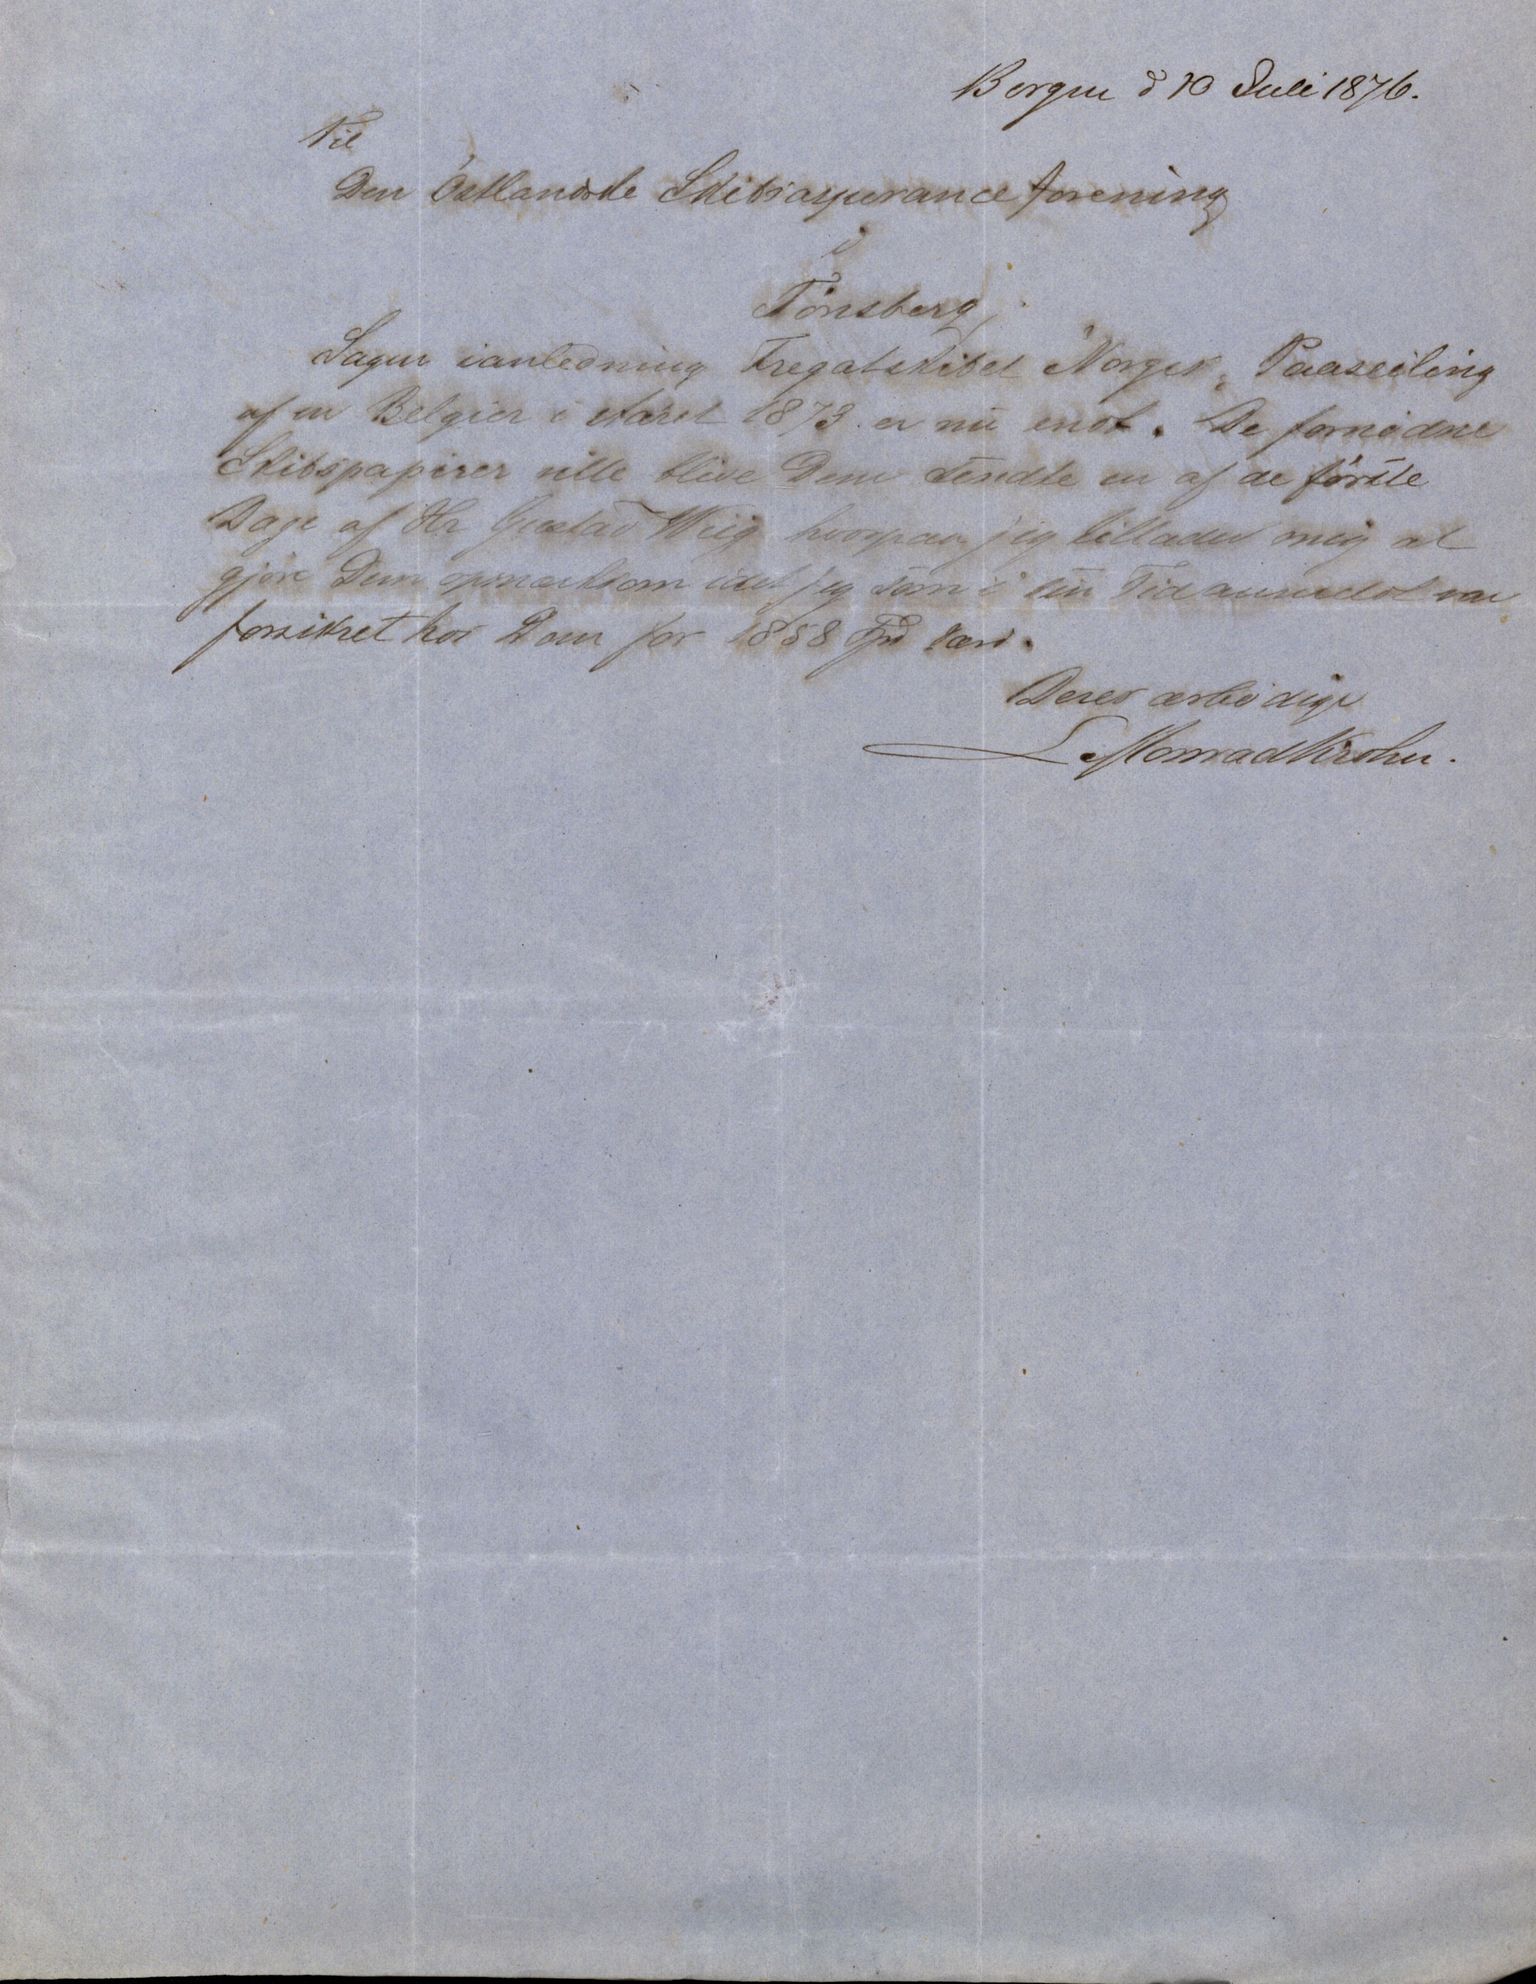 Bergen d 10 Juli 1876.
Til
Den Östlandske Skibsassuranceforening
i
Tönsberg
Sagen ianledning Fregatskibet "Norges" Paaseiling
af en Belgier i Aaret 1873 er nu endt. De fornödne
Skibspapirer ville blive Dem sendte en af de förste
Dage af Hr Gustav Wiig hvorpaa jeg tillader mig at
gjöre Dem opmærksom idet jeg som i sin Tid anmeldt var
forsikret hos Dem for 1858 Spd
Deres ærbödige
L Monrad Krohn.